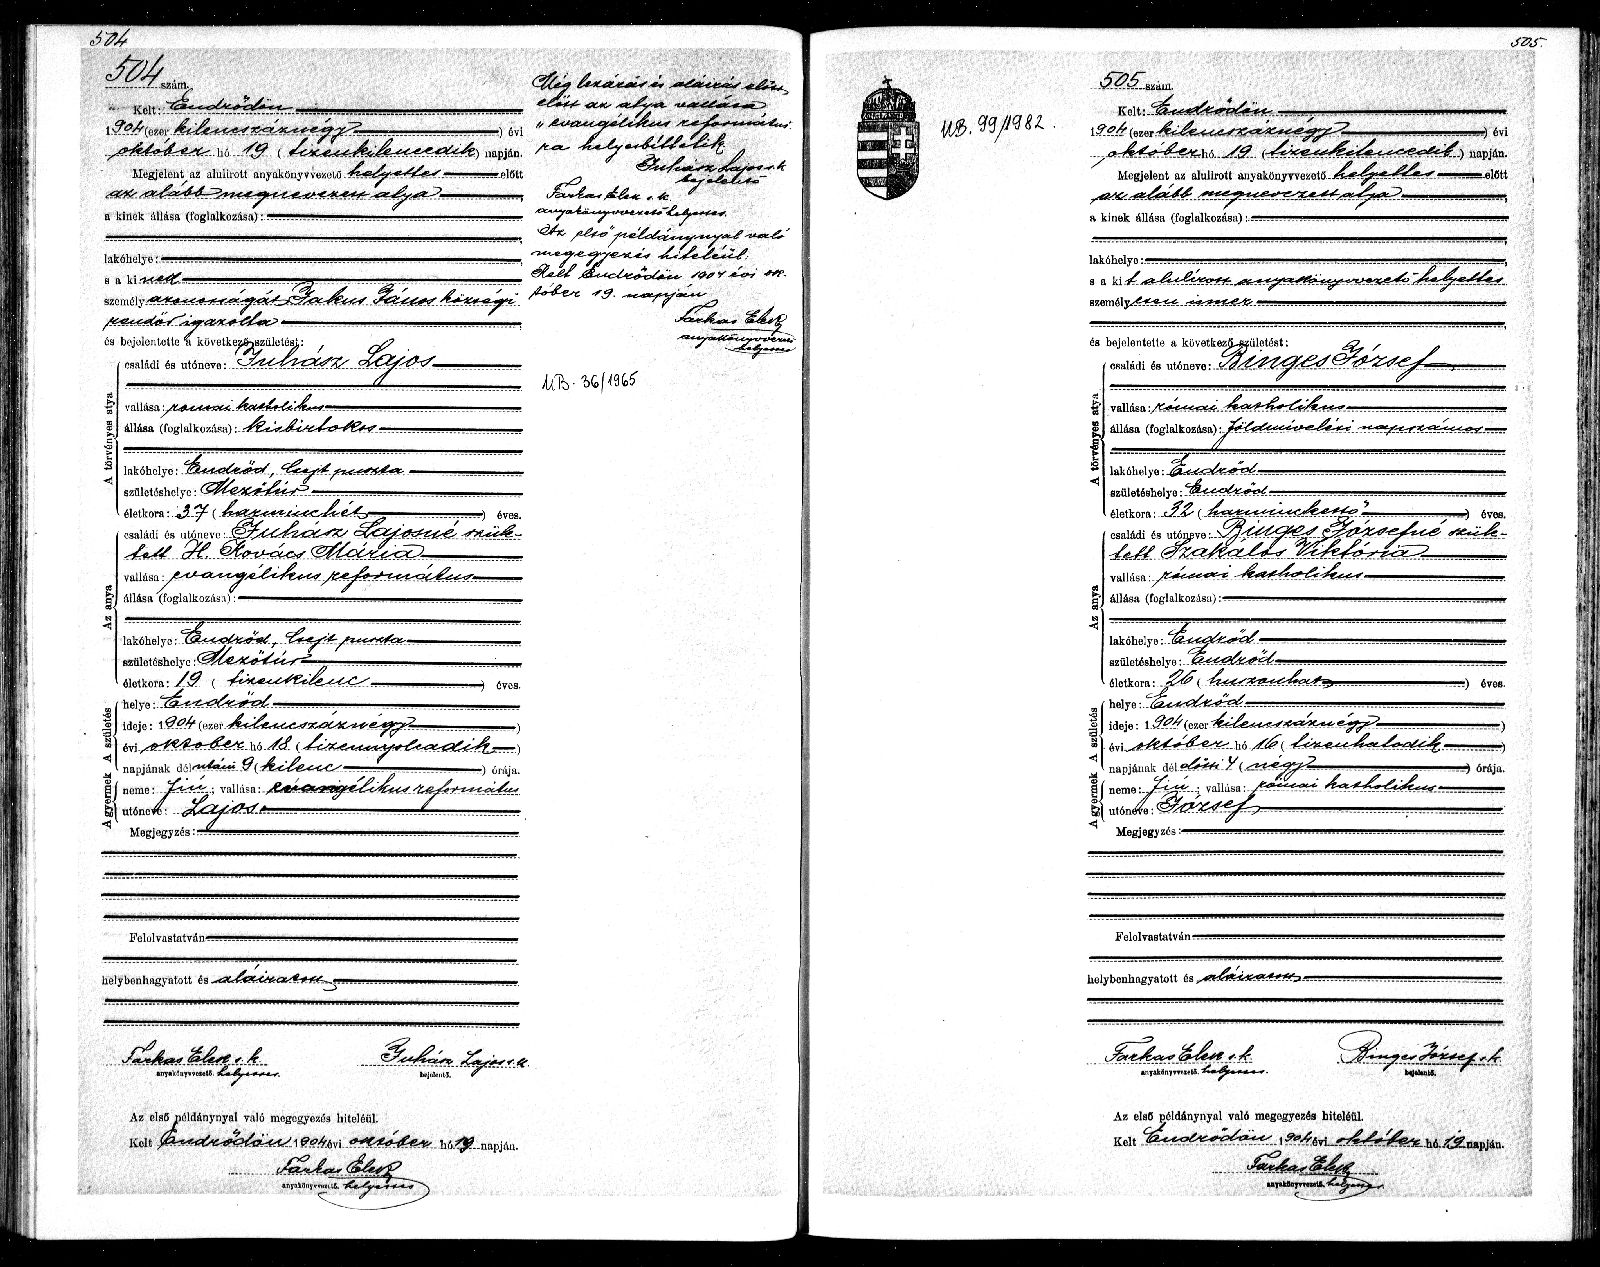 504
504 szám.
Kelt: Endrődön
1904 (ezer kilencszáznégy) évi
október hó 19 (tizenkilencedik) napján.
Megjelent az alulirott anyakönyvvezető helyettes előtt
az alább megnevezett atya
a kinek állása (foglalkozása):
lakóhelye:
s a kinek
személyazonosságát Jakus János községi
rendőr igazolta
és bejelentette a következő születést:
A törvényes atya
családi és utóneve: Juhász Lajos
vallása: római katholikus
állása (foglalkozása): kisbirtokos
lakóhelye: Endrőd, Csejt puszta
születéshelye: Mezőtúr
életkora: 37 (harminchét) éves.
Az anya
családi és utóneve: Juhász Lajosné szüle-
tett H. Kovács Mária
vallása: evangélikus református
állása (foglalkozása):
lakóhelye: Endrőd, Csejt puszta
születéshelye: Mezőtúr
életkora: 19 (tizenkilenc) éves.
A gyermek A születés
helye: Endrőd
ideje: 1904 (ezer kilencszáznégy)
évi október hó 18 (tizennyolcadik)
napjának délutáni 9 (kilenc) órája.
neme: fiú; vallása: evangélikus református
utóneve: Lajos
Megjegyzés:
Felolvastatván
helybenhagyatott és aláiratott
Farkas Elek s.k. Juhász Lajos s.k.
anyakönyvvezető. helyettes. bejelentő.
Az első példánynyal való megegyezés hiteléül.
Kelt Endrődön 1904 évi október hó 19 napján.
Farkas Elek
anyakönyvvezető. helyettes
Még lezárás és aláírás előtt
előtt az atya vallása
"evangélikus református"
ra helyesbíttetik
Juhász Lajos s.k.
bejelentő
Farkas Elek s.k.
anyakönyvvezető helyettes.
Az első példánynyal való
megegyezés hiteléül.
Kelt Endrődön 1904 évi ok-
tóber 19. napján
Farkas Elek
anyakönyvvezető
helyettes
UB. 36/1965
505.
UB. 99/1982.
505 szám.
Kelt: Endrődön
1904 (ezer kilencszáznégy) évi
október hó 19 (tizenkilencedik) napján.
Megjelent az alulirott anyakönyvvezető helyettes előtt
az alább megnevezett atya
a kinek állása (foglalkozása):
lakóhelye:
s a kit alulírott anyakönyvvezető helyettes
személyesen ismer
és bejelentette a következő születést:
A törvényes atya
családi és utóneve: Binges József
vallása: római katholikus
állása (foglalkozása): földmívelési napszámos
lakóhelye: Endrőd
születéshelye: Endrőd
életkora: 32 (harminckettő) éves.
Az anya
családi és utóneve: Binges Józsefné szüle-
tett Szakálos Viktória
vallása: római katholikus
állása (foglalkozása):
lakóhelye: Endrőd
születéshelye: Endrőd
életkora: 26 (huszonhat) éves.
A gyermek A születés
helye: Endrőd
ideje: 1904 (ezer kilencszáznégy)
évi október hó 16 (tizenhatodik)
napjának délelőtti 4 (négy) órája.
neme: fiú; vallása: római katholikus
utóneve: József
Megjegyzés:
Felolvastatván
helybenhagyatott és aláiratott
Farkas Elek s.k. Binges József s.k.
anyakönyvvezető. helyettes. bejelentő.
Az első példánynyal való megegyezés hiteléül.
Kelt Endrődön 1904 évi október hó 19 napján.
Farkas Elek
anyakönyvvezető. helyettes